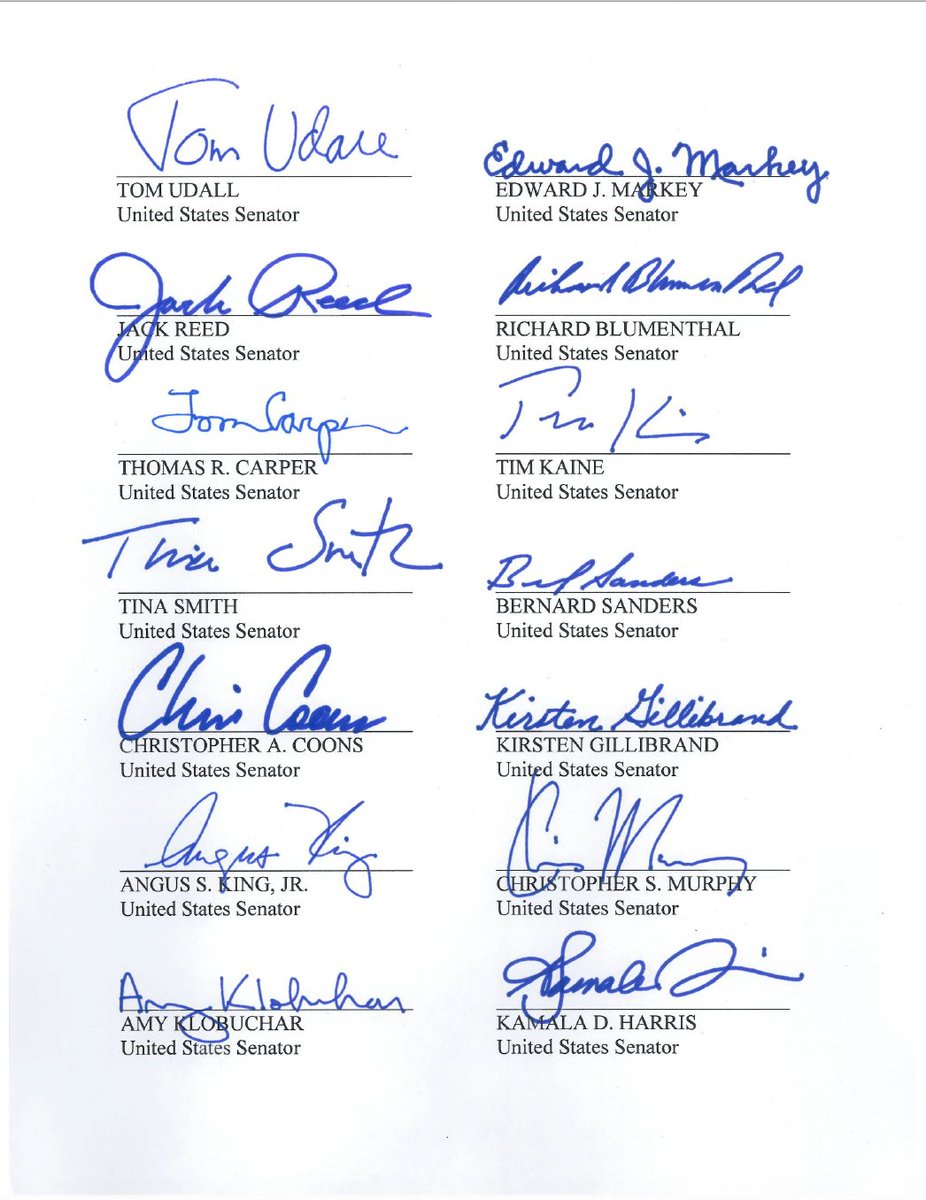 Tom Udall
TOM UDALL
United States Senator
Edward J. Markey
EDWARD J. MARKEY
United States Senator
Jack Reed
JACK REED
United States Senator
Richard Blumenthal
RICHARD BLUMENTHAL
United States Senator
Tom Carper
THOMAS R. CARPER
United States Senator
Tim Kaine
TIM KAINE
United States Senator
Tina Smith
TINA SMITH
United States Senator
Sanders
BERNARD SANDERS
United States Senator
Chris Coons
CHRISTOPHER A. COONS
United States Senator
Kirsten Gillibrand
KIRSTEN GILLIBRAND
United States Senator
Angus King
ANGUS S. KING, JR.
United States Senator
Chris Murphy
CHRISTOPHER S. MURPHY
United States Senator
Amy Klobuchar
AMY KLOBUCHAR
United States Senator
Kamala
KAMALA D. HARRIS
United States Senator